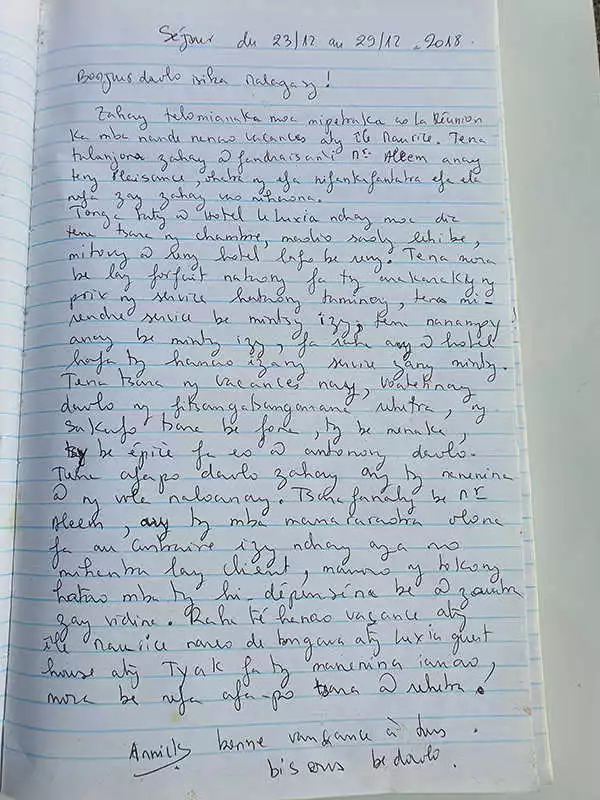 Séjour du 23/12 au 29/12 . 2018.
Bonjour daolo isika Malagasy !
Zahay telomianaka moa mipetraka ao La Réunion
ka mba nande nanao vacances aty île Maurice. Tena
talanjona zahay @ fandraisan'i Mr Aleem anay
teny Plaisance, ohatra ny efa nifankafantatra efa ela
nefa zay zahay vao nihaona.
Tonga taty @ hotel Luxia nday moa dia
tena tsara ny chambre, madio sady lehibe,
mitovy @ reny hotel be reny. Tena mora
be lay forfait natao ny fa tsy anakanaky ny
prix ny service hataony taminay, tena mi-
rendre service be mintsy izy, tena nanampy
anay be mintsy izy, fa raha any @ hotel
hafa tsy hanao izany service zany mintsy.
Tena tsara ny vacances nay, voatetinay
daolo ny fitsangatsanganana rehetra, ny
sakafo tsara be foana, tsy be menaka,
tsy be épicé fa eo @ antonony daolo.
Tena afa-po daolo zahay ary tsy nenenina
@ ny vole naloanay. Tsara fanahy be Mr
Aleem, ary tsy mba manararaotra olona
fa au contraire izy nday aza no
mihentra lay client, manao ny tokony
hatao mba tsy hi-dépensena be @ zavatra
zay vidina. Raha té hanao vacance aty
île Maurice nareo de tongava aty Luxia guest
house aty Tyack fa tsy manenina ianao,
mora be nefa afa-po tsara @ rehetra !
Annick bonne vancance à tous .
bisous be daolo .